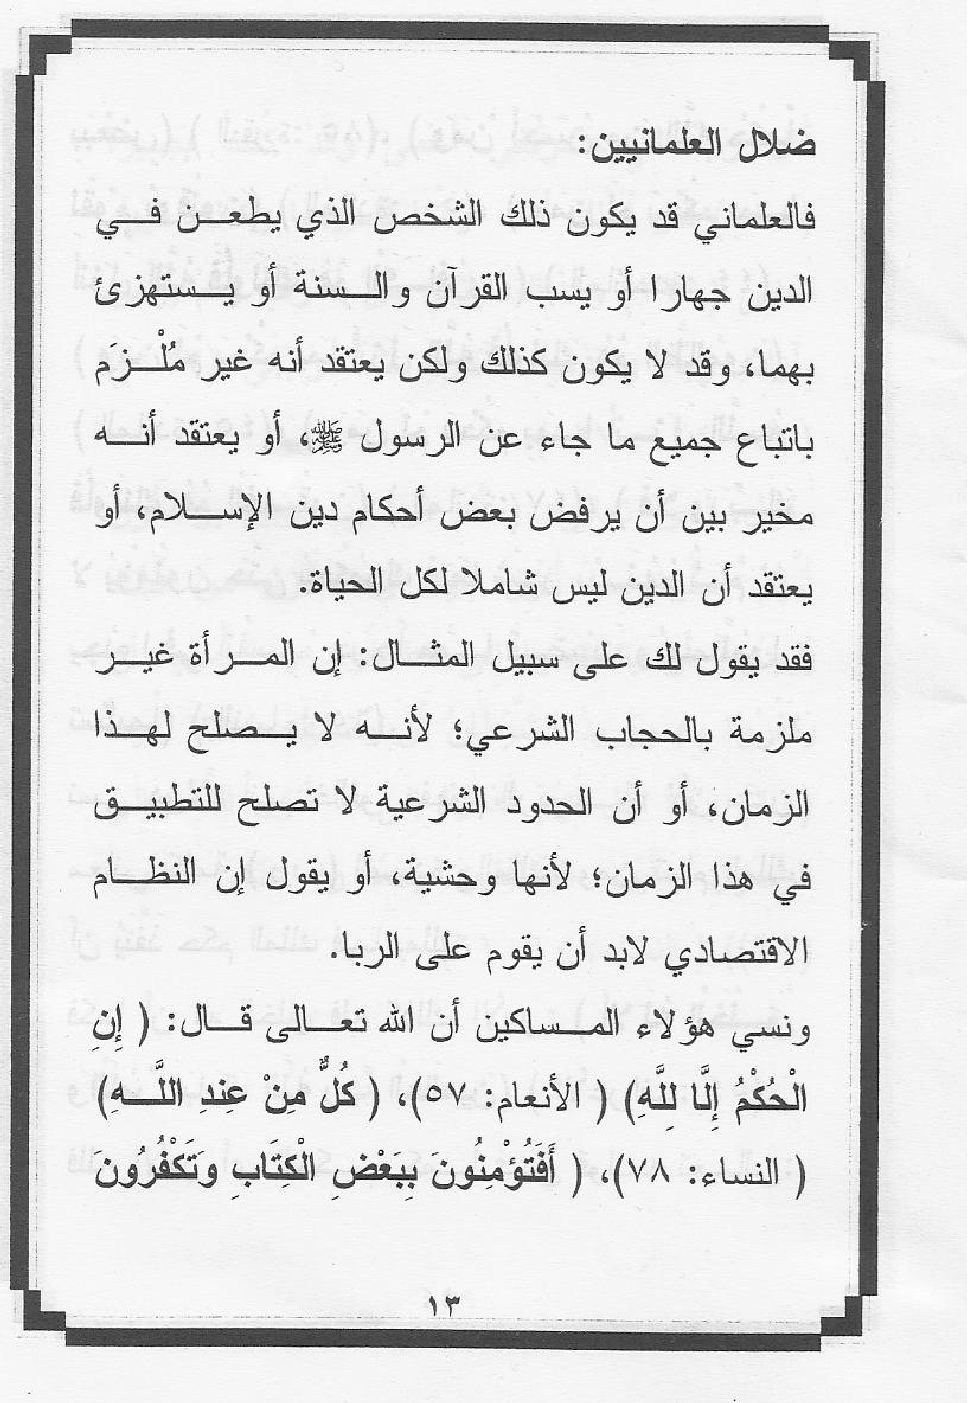 ضلال العلمانيين:
فالعلماني قد يكون ذلك الشخص الذي يطعن في
الدين جهارا أو يسب القرآن والسنة أو يستهزئ
بهما، وقد لا يكون كذلك ولكن يعتقد أنه غير مُلْزَم
باتباع جميع ما جاء عن الرسول ﷺ، أو يعتقد أنه
مخير بين أن يرفض بعض أحكام دين الإسلام، أو
يعتقد أن الدين ليس شاملا لكل الحياة.
فقد يقول لك على سبيل المثال: إن المرأة غير
ملزمة بالحجاب الشرعي؛ لأنه لا يصلح لهذا
الزمان، أو أن الحدود الشرعية لا تصلح للتطبيق
في هذا الزمان؛ لأنها وحشية، أو يقول إن النظام
الاقتصادي لابد أن يقوم على الربا.
ونسي هؤلاء المساكين أن الله تعالى قال: ( إِنِ
الْحُكْمُ إِلَّا لِلَّهِ) ( الأنعام: ٥٧)، ( كُلٌّ مِنْ عِندِ اللَّهِ)
( النساء: ٧٨)، ( أَفَتُؤْمِنُونَ بِبَعْضِ الْكِتَابِ وَتَكْفُرُونَ
١٣